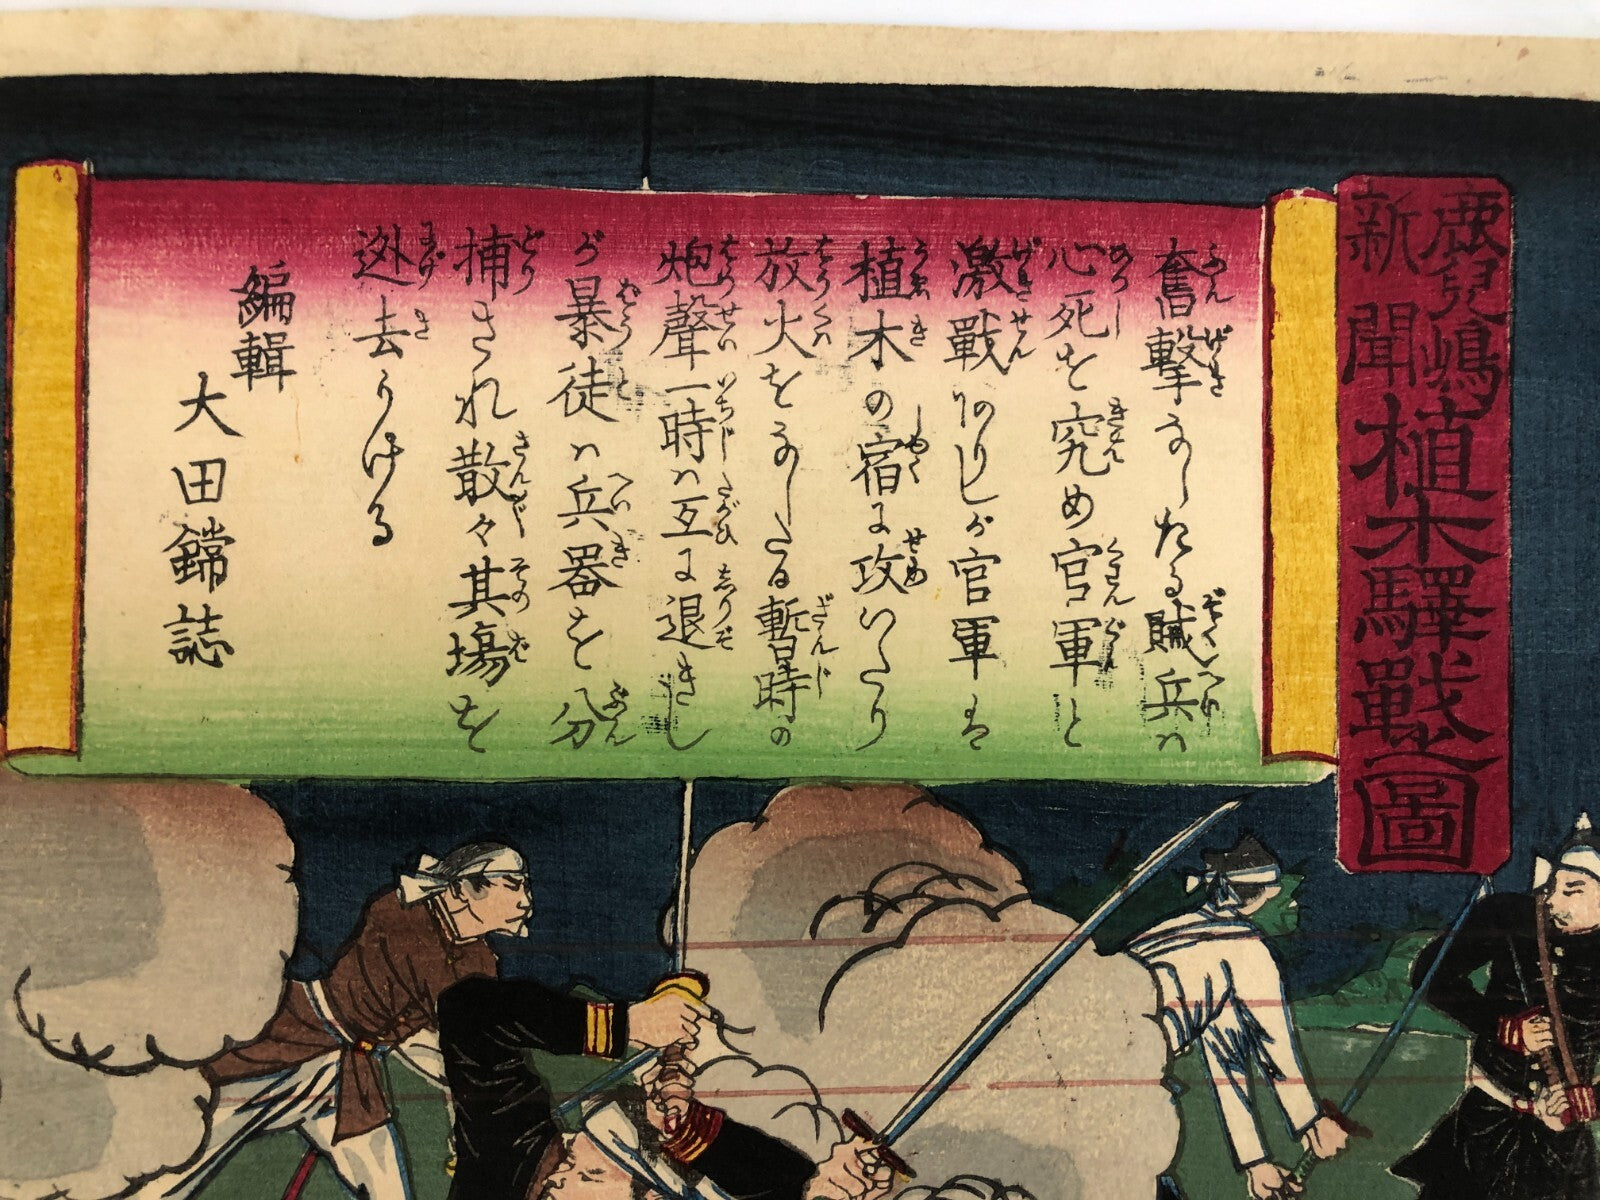 鹿兒嶋
新聞
植木驛戰之圖
奮撃なしたる賊兵ハ
必死を究め官軍と
激戰ありしが官軍は
植木の宿に攻いたり
放火をなしたる暫時の
炮聲一時ハ互に退きし
が暴徒ハ兵器を分
捕され散々其場を
迯去りける
編輯
大田鐺誌